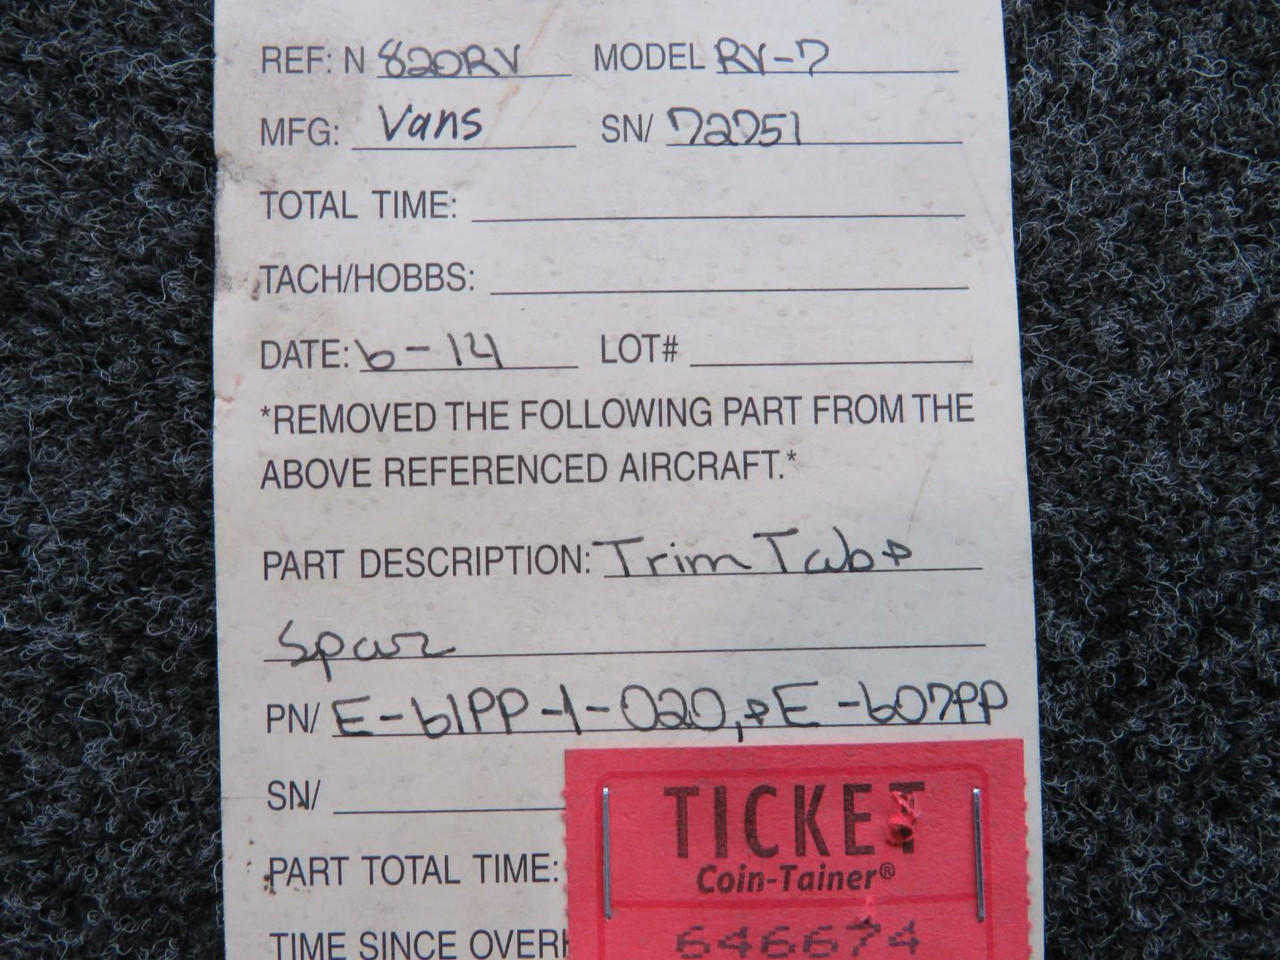 REF: N 820RV MODEL RV-7
MFG: Vans SN/ 72751
TOTAL TIME:
TACH/HOBBS:
DATE: 6-14 LOT#
*REMOVED THE FOLLOWING PART FROM THE
ABOVE REFERENCED AIRCRAFT.*
PART DESCRIPTION: Trim Tab &
Spar
PN/ E-61PP-1-020, & E-607PP
SN/
PART TOTAL TIME:
TIME SINCE OVERH
TICKET
Coin-Tainer®
646674